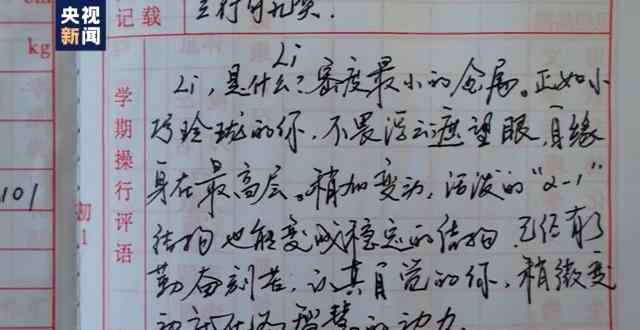 央视新闻
cm
kg
101
记载
学期操行评语
初1
Li
Li，是什么？密度最小的金属。正如小
巧玲珑的你，不畏浮云遮望眼，自缘
身在最高层。稍加变动，活泼的“2-1”
结构也能变成稳定的结构，已经有了
勤奋刻苦，认真自觉的你，稍微变
动就化为智慧的动力。